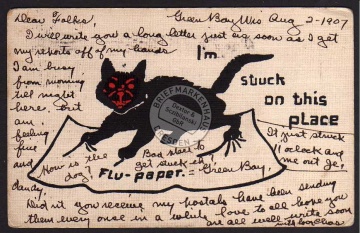 Dear Folks,
Green Bay Wis Aug 2-1907
I will write you a long letter just as soon as I get
my reports off of my hands
I am busy
from morning
till night
here, but am
feeling
fine
and
dandy.
I'm
stuck
on this
place
BRIEFMARKENHAUS
It just struck
11 oclock and
me out go.
How is the
dog?
Bad place to
get stuck eh!
Fly-paper. = Green Bay.
Did it you receive my postals have been sending
them every once in a while love to all hope you
are all well write soon